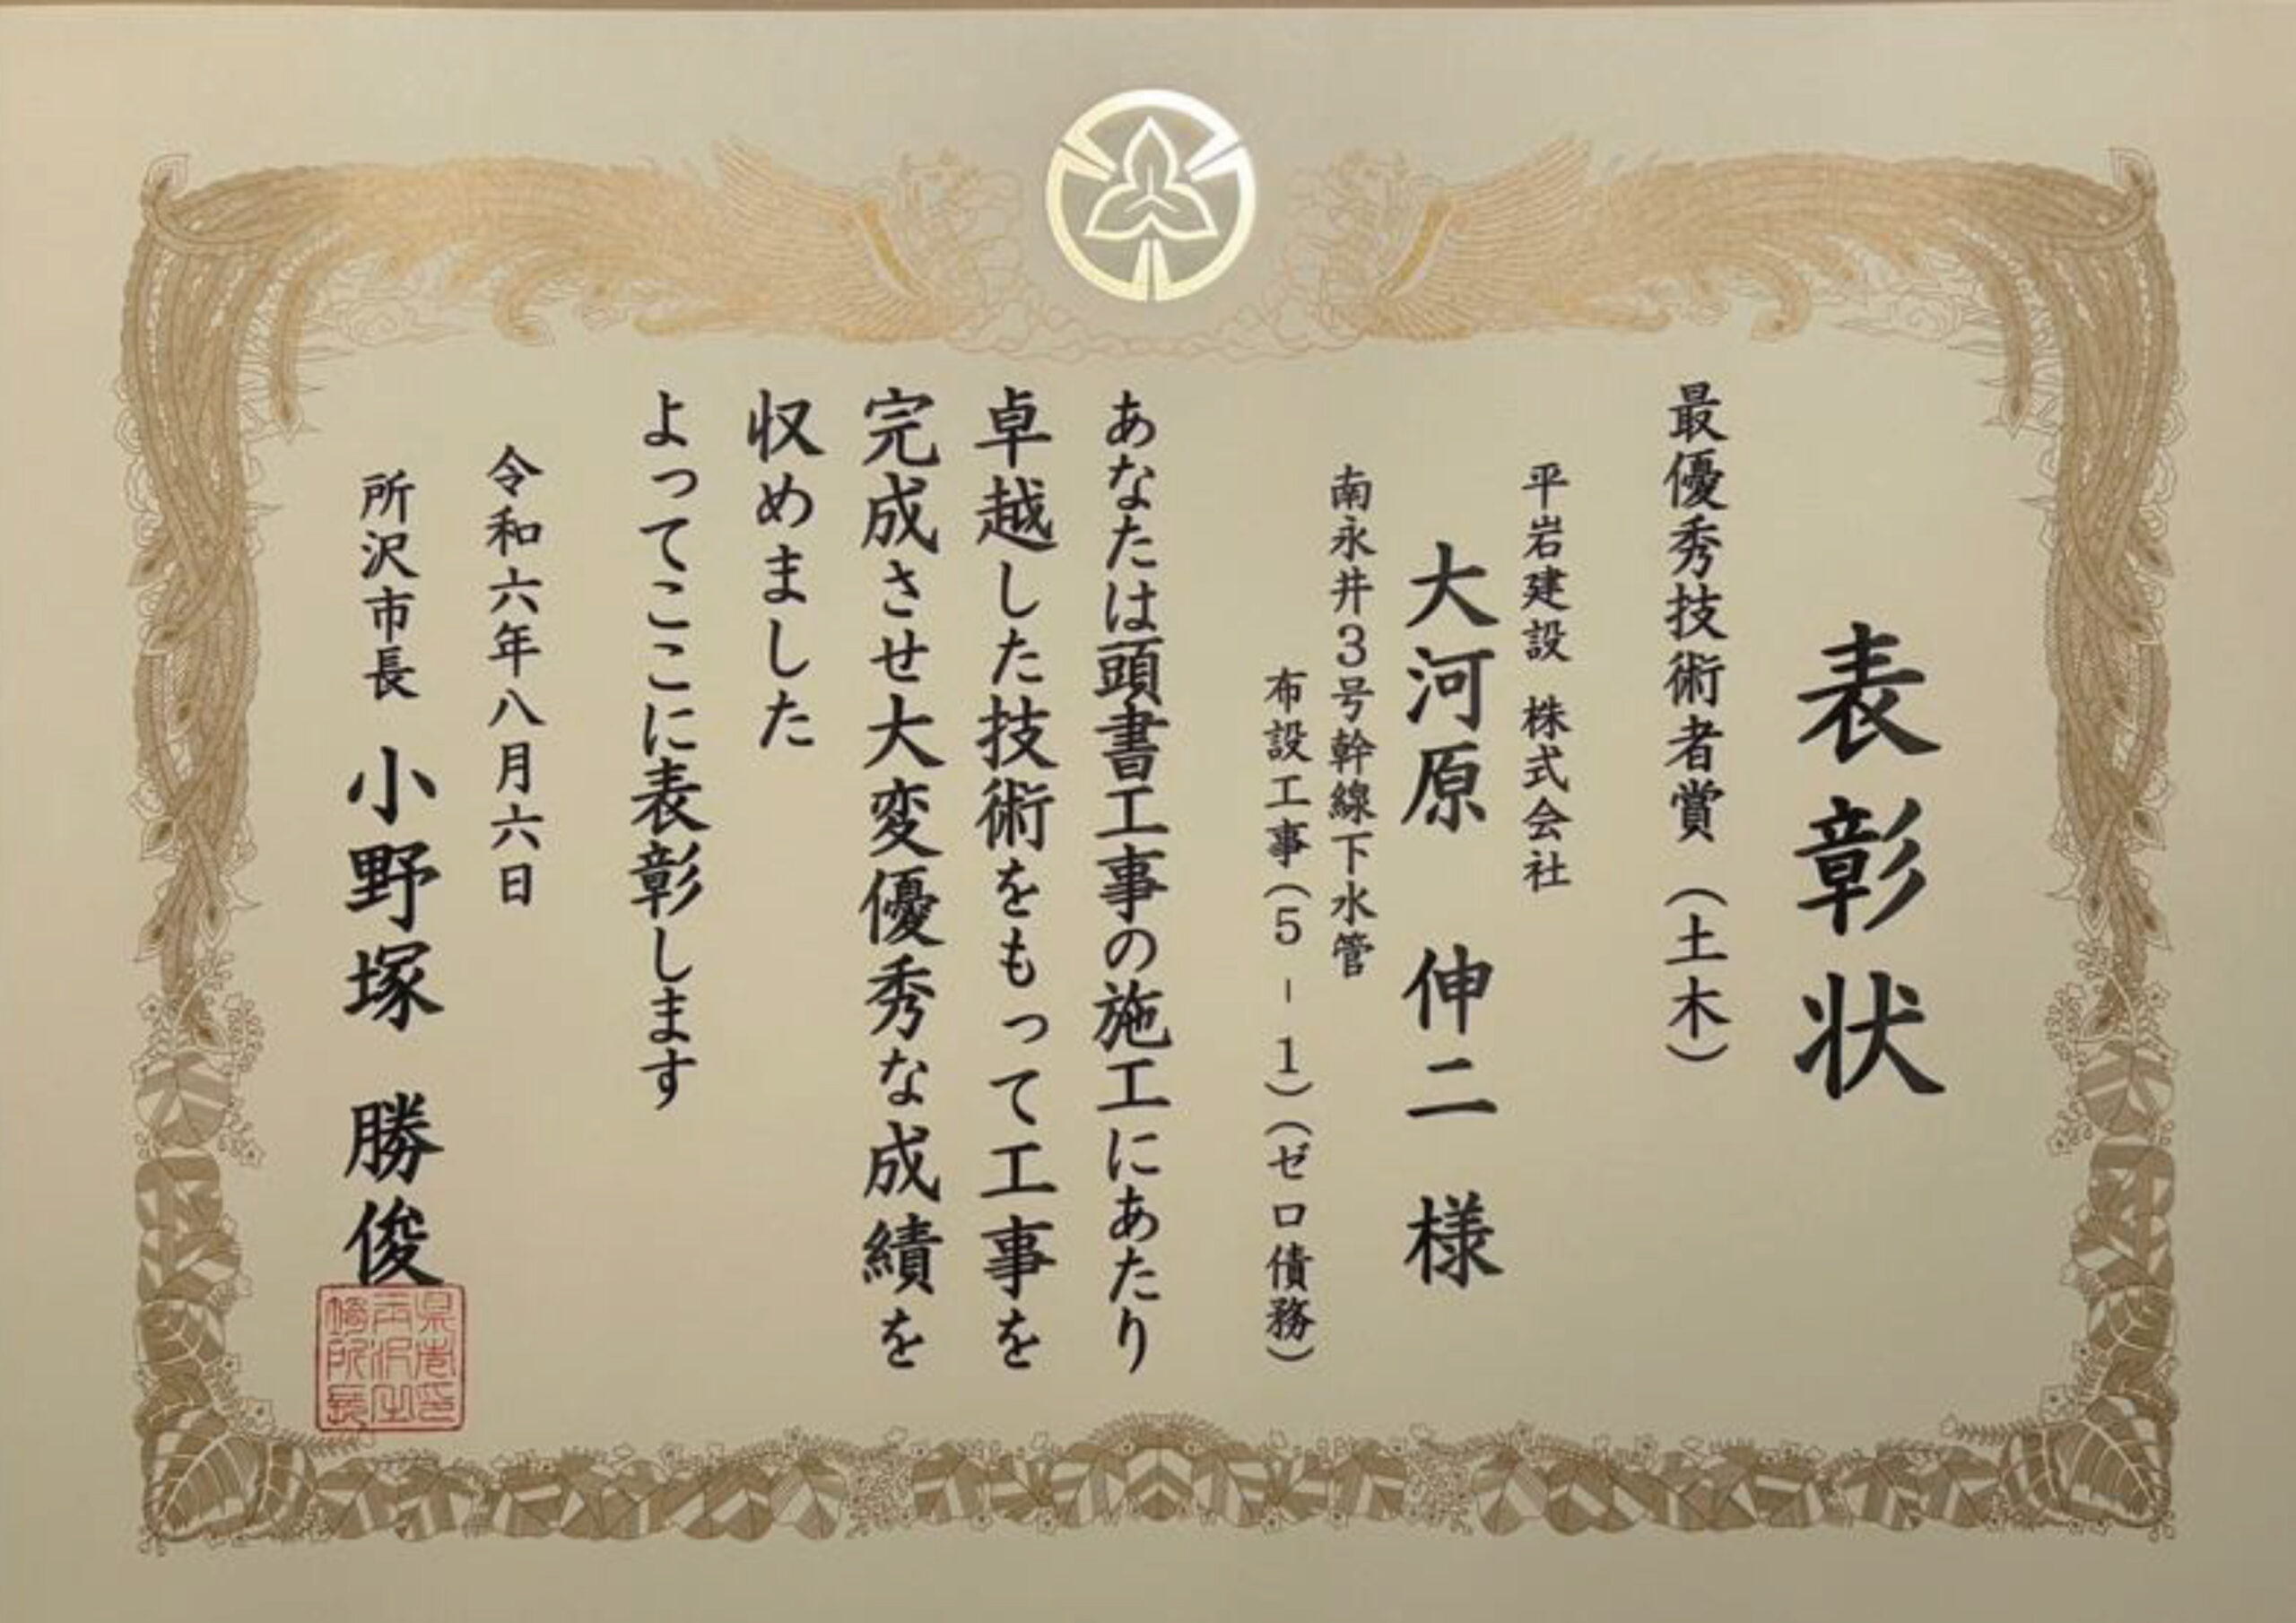 表彰状
最優秀技術者賞（土木）
平岩建設 株式会社
大河原 伸二 様
南永井3号幹線下水管
布設工事（5-1）（ゼロ債務）
あなたは頭書工事の施工にあたり
卓越した技術をもって工事を
完成させ大変優秀な成績を
収めました
よってここに表彰します
令和六年八月六日
所沢市長 小野塚 勝俊